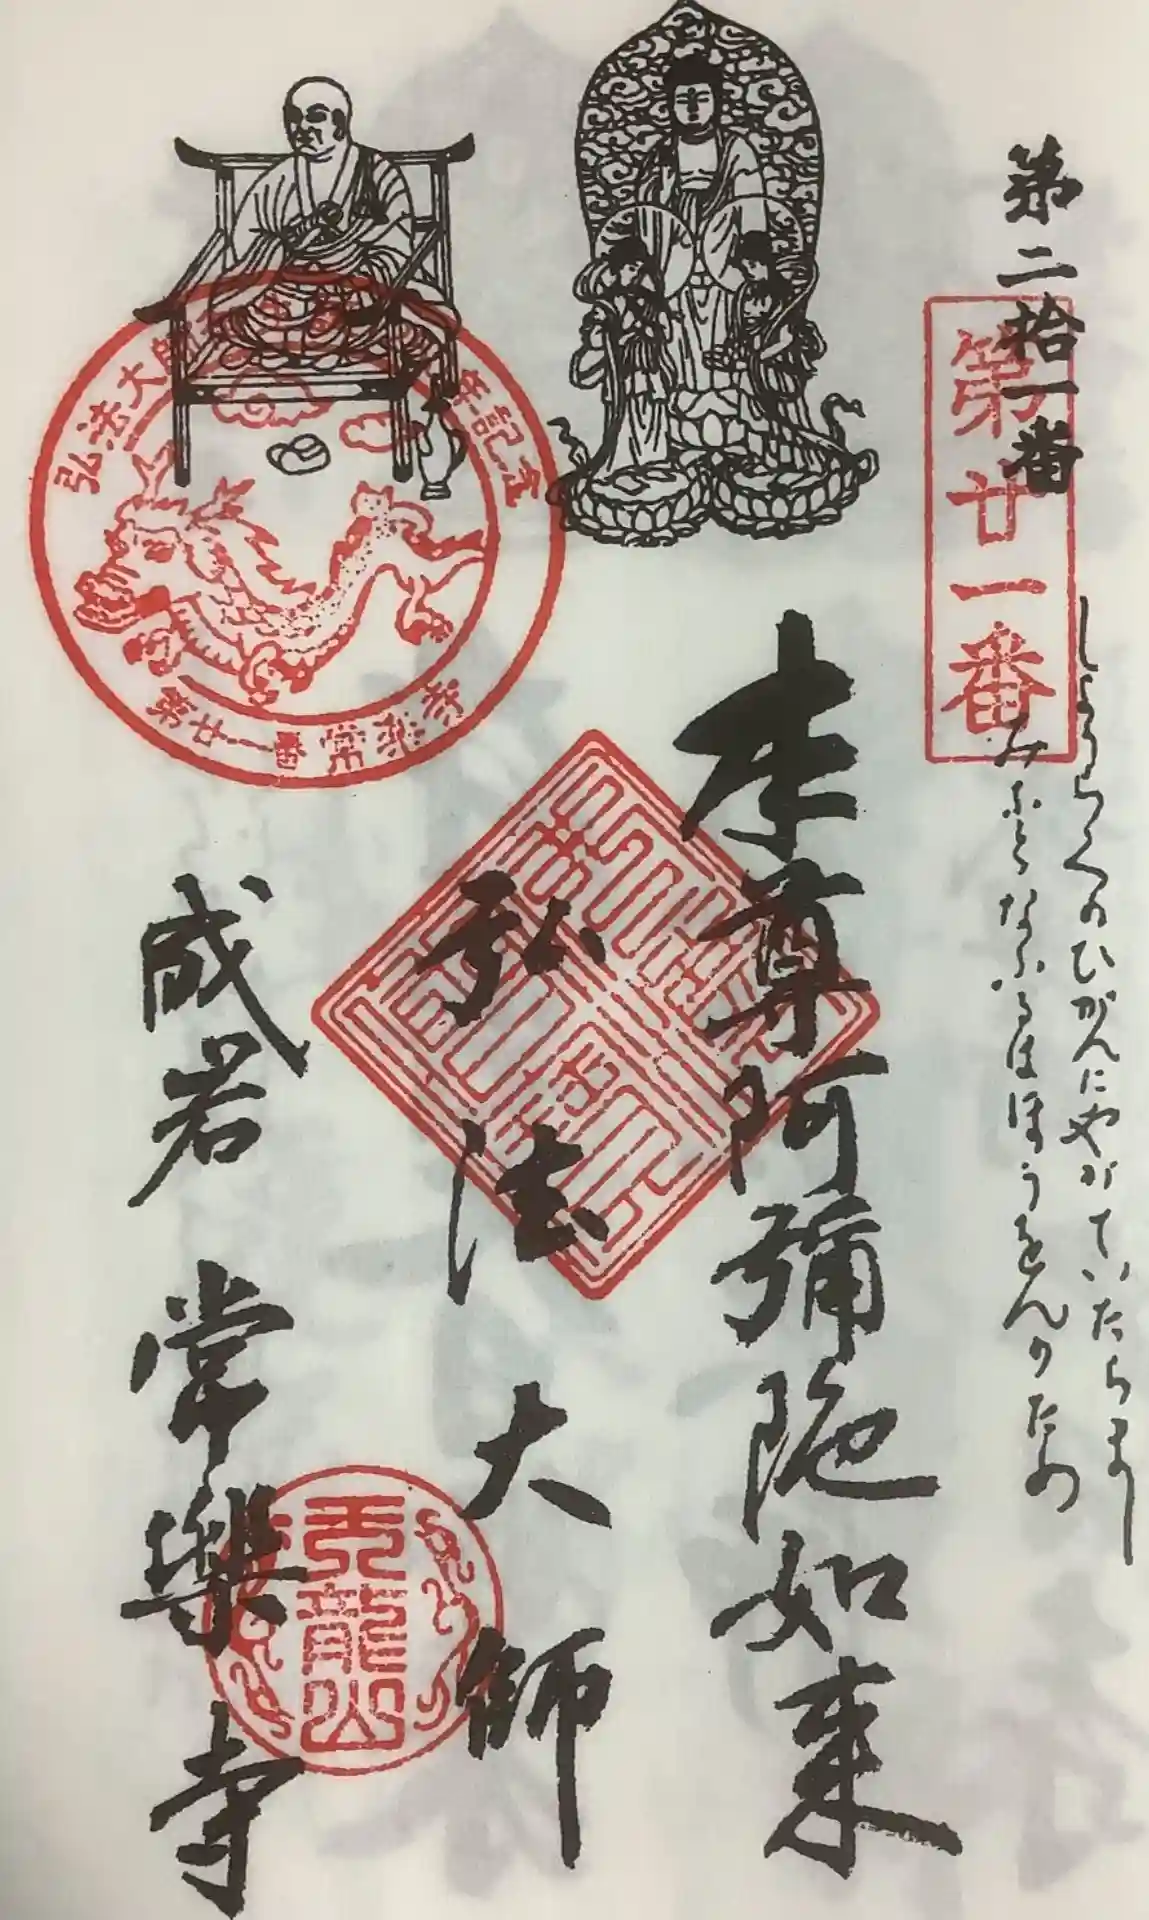 第二拾一番
第廿一番
じょうらくのひがんにやがていたらまし
みなとなふるはほうをんのため
本尊阿彌陀如来
弘法大師
成岩 常樂寺
弘法大師
年記念
第廿一番常楽寺
天龍山